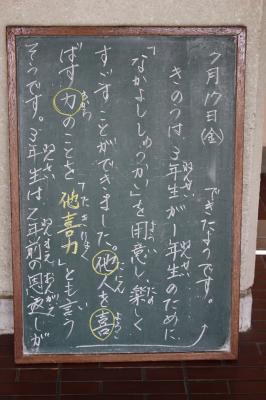 7月17日(金)
きのうは、3年生が1年生のために
「なかよししゅうかい」を用意し、楽しく
すごすことができました。他人を喜
ばす力のことを「他喜力」とも言う
そうです。3年生は、2年前の恩返しが
できたようです。